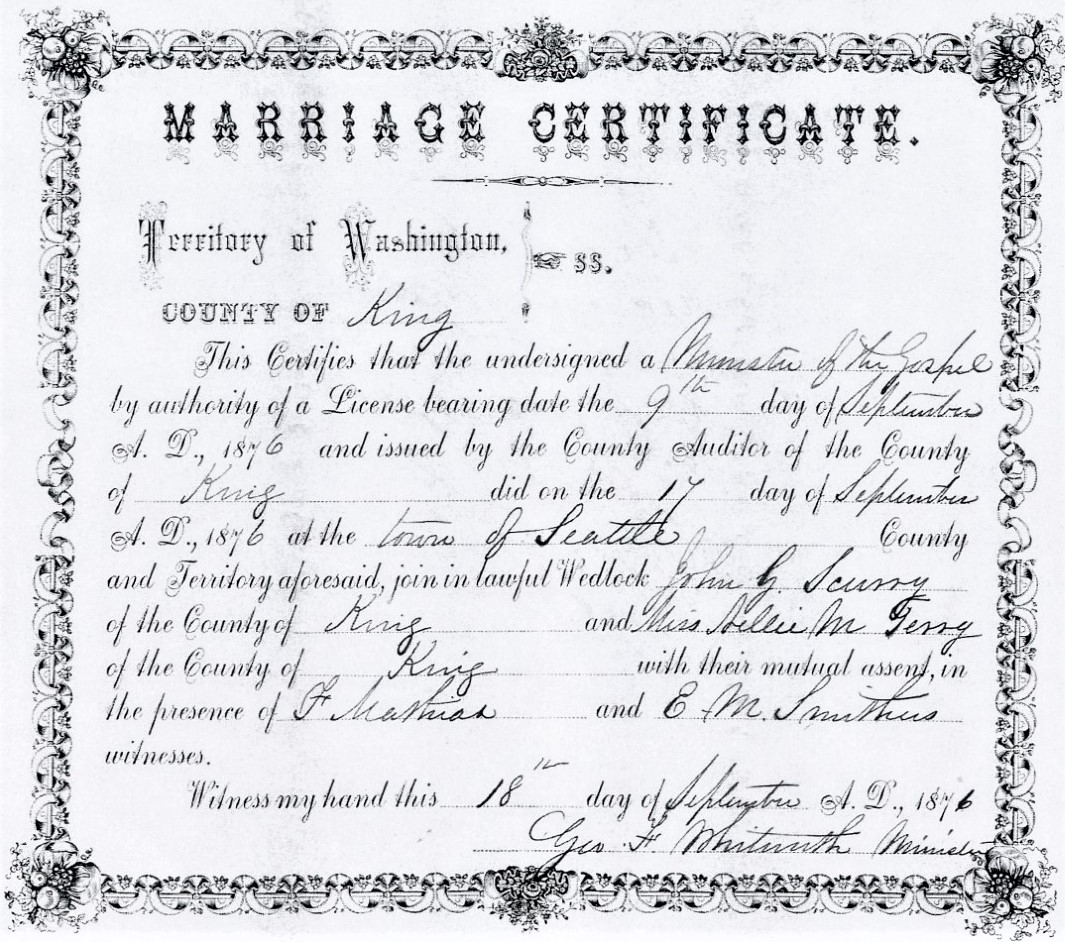 MARRIAGE CERTIFICATE.
Territory of Washington,
SS.
COUNTY OF King
This Certifies that the undersigned a Minister of the Gospel
by authority of a License bearing date the 9th day of September
A. D., 1876 and issued by the County Auditor of the County
of King did on the 17 day of September
A. D., 1876 at the town of Seattle County
and Territory aforesaid, join in lawful Wedlock John G. Scurry
of the County of King and Miss Nellie M Terry
of the County of King with their mutual assent, in
the presence of F Mathias and E. M. Smithers
witnesses.
Witness my hand this 18th day of September A. D., 1876
Geo. F. Whitworth Minister